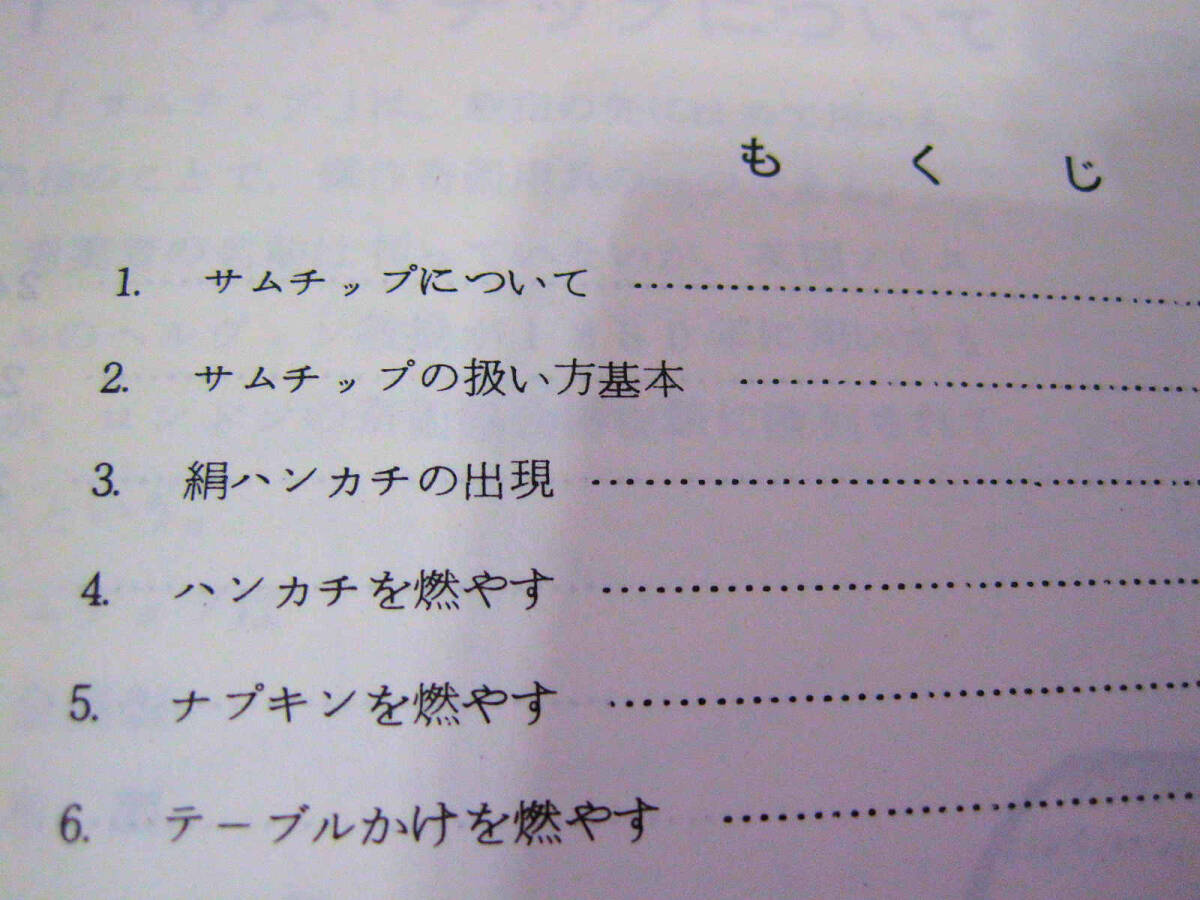 も く じ
1. サムチップについて ……………………
2. サムチップの扱い方基本 ……………………
3. 絹ハンカチの出現 ……………………
4. ハンカチを燃やす ……………………
5. ナプキンを燃やす ……………………
6. テーブルかけを燃やす ……………………